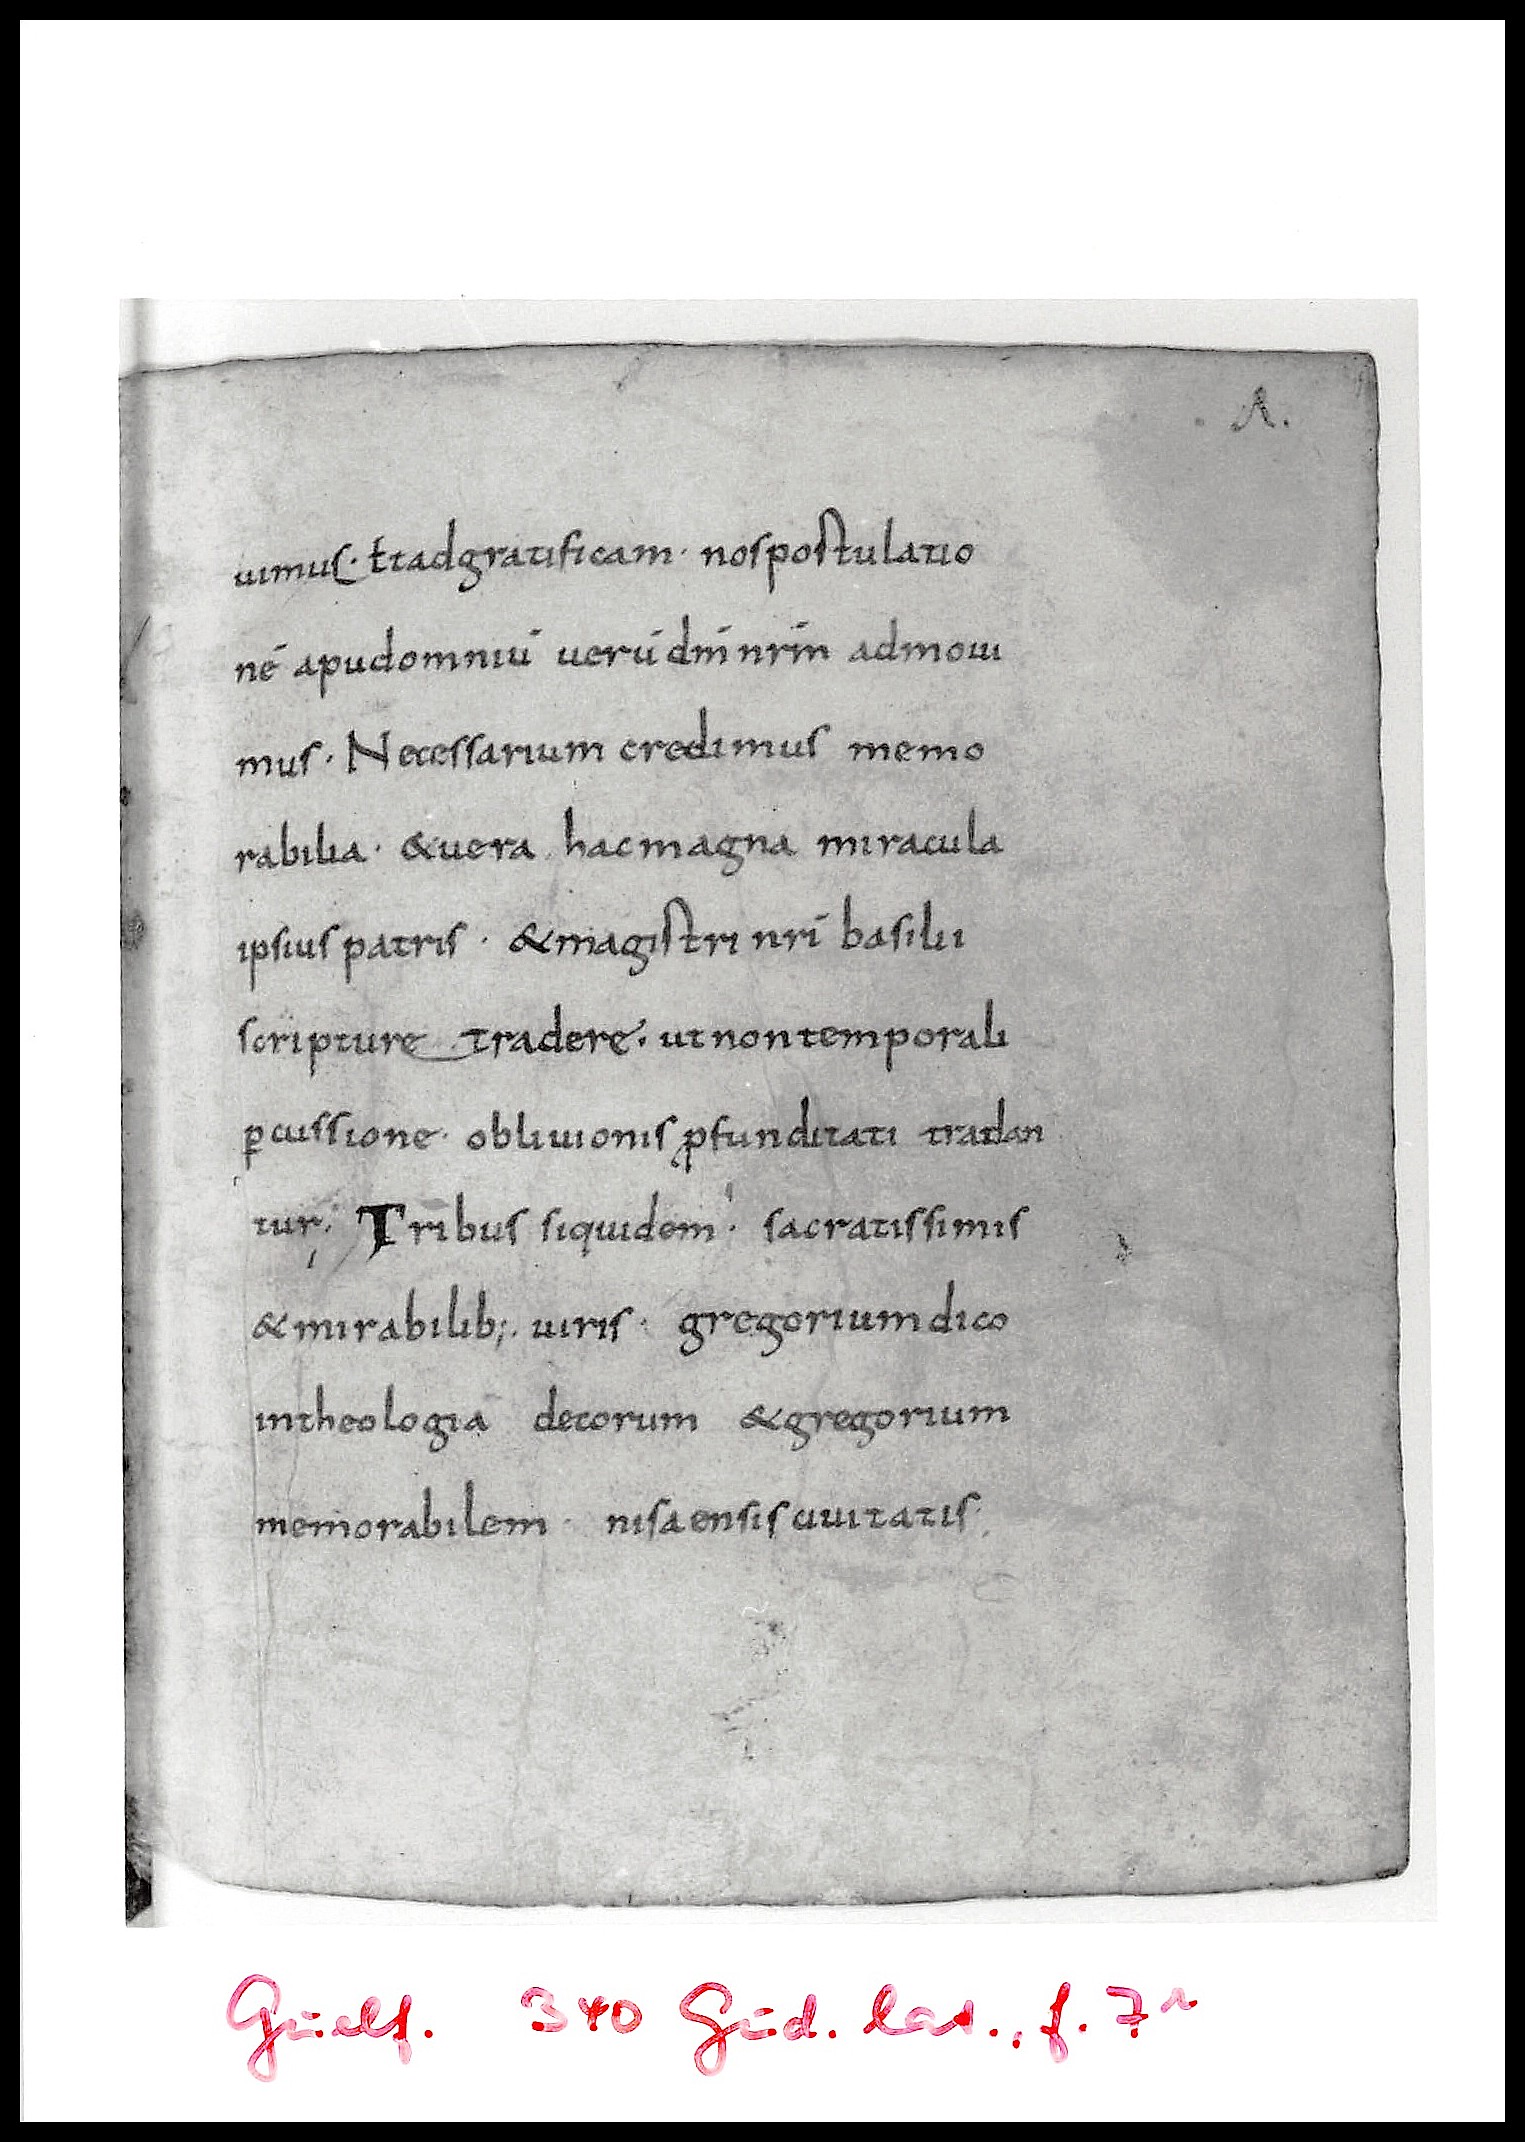 .A.
uimus. & adgratificam. nospostulatio
nē apudomniū uerū dm̄ nr̄m admoui
mus. Necessarium credimus memo
rabilia. &uera hac magna miracula
ipsius patris. &magistri nr̄i basilii
scripture tradere. ut non temporali
ꝑcussione. obliuionis ꝓfunditati tradan
tur; Tribus siquidem. sacratissimis
&mirabilib;. uiris. gregorium dico
intheologia decorum &gregorium
memorabilem. nisaensis ciuitatis.
Guelf. 340 Gud. lat., f. 7r